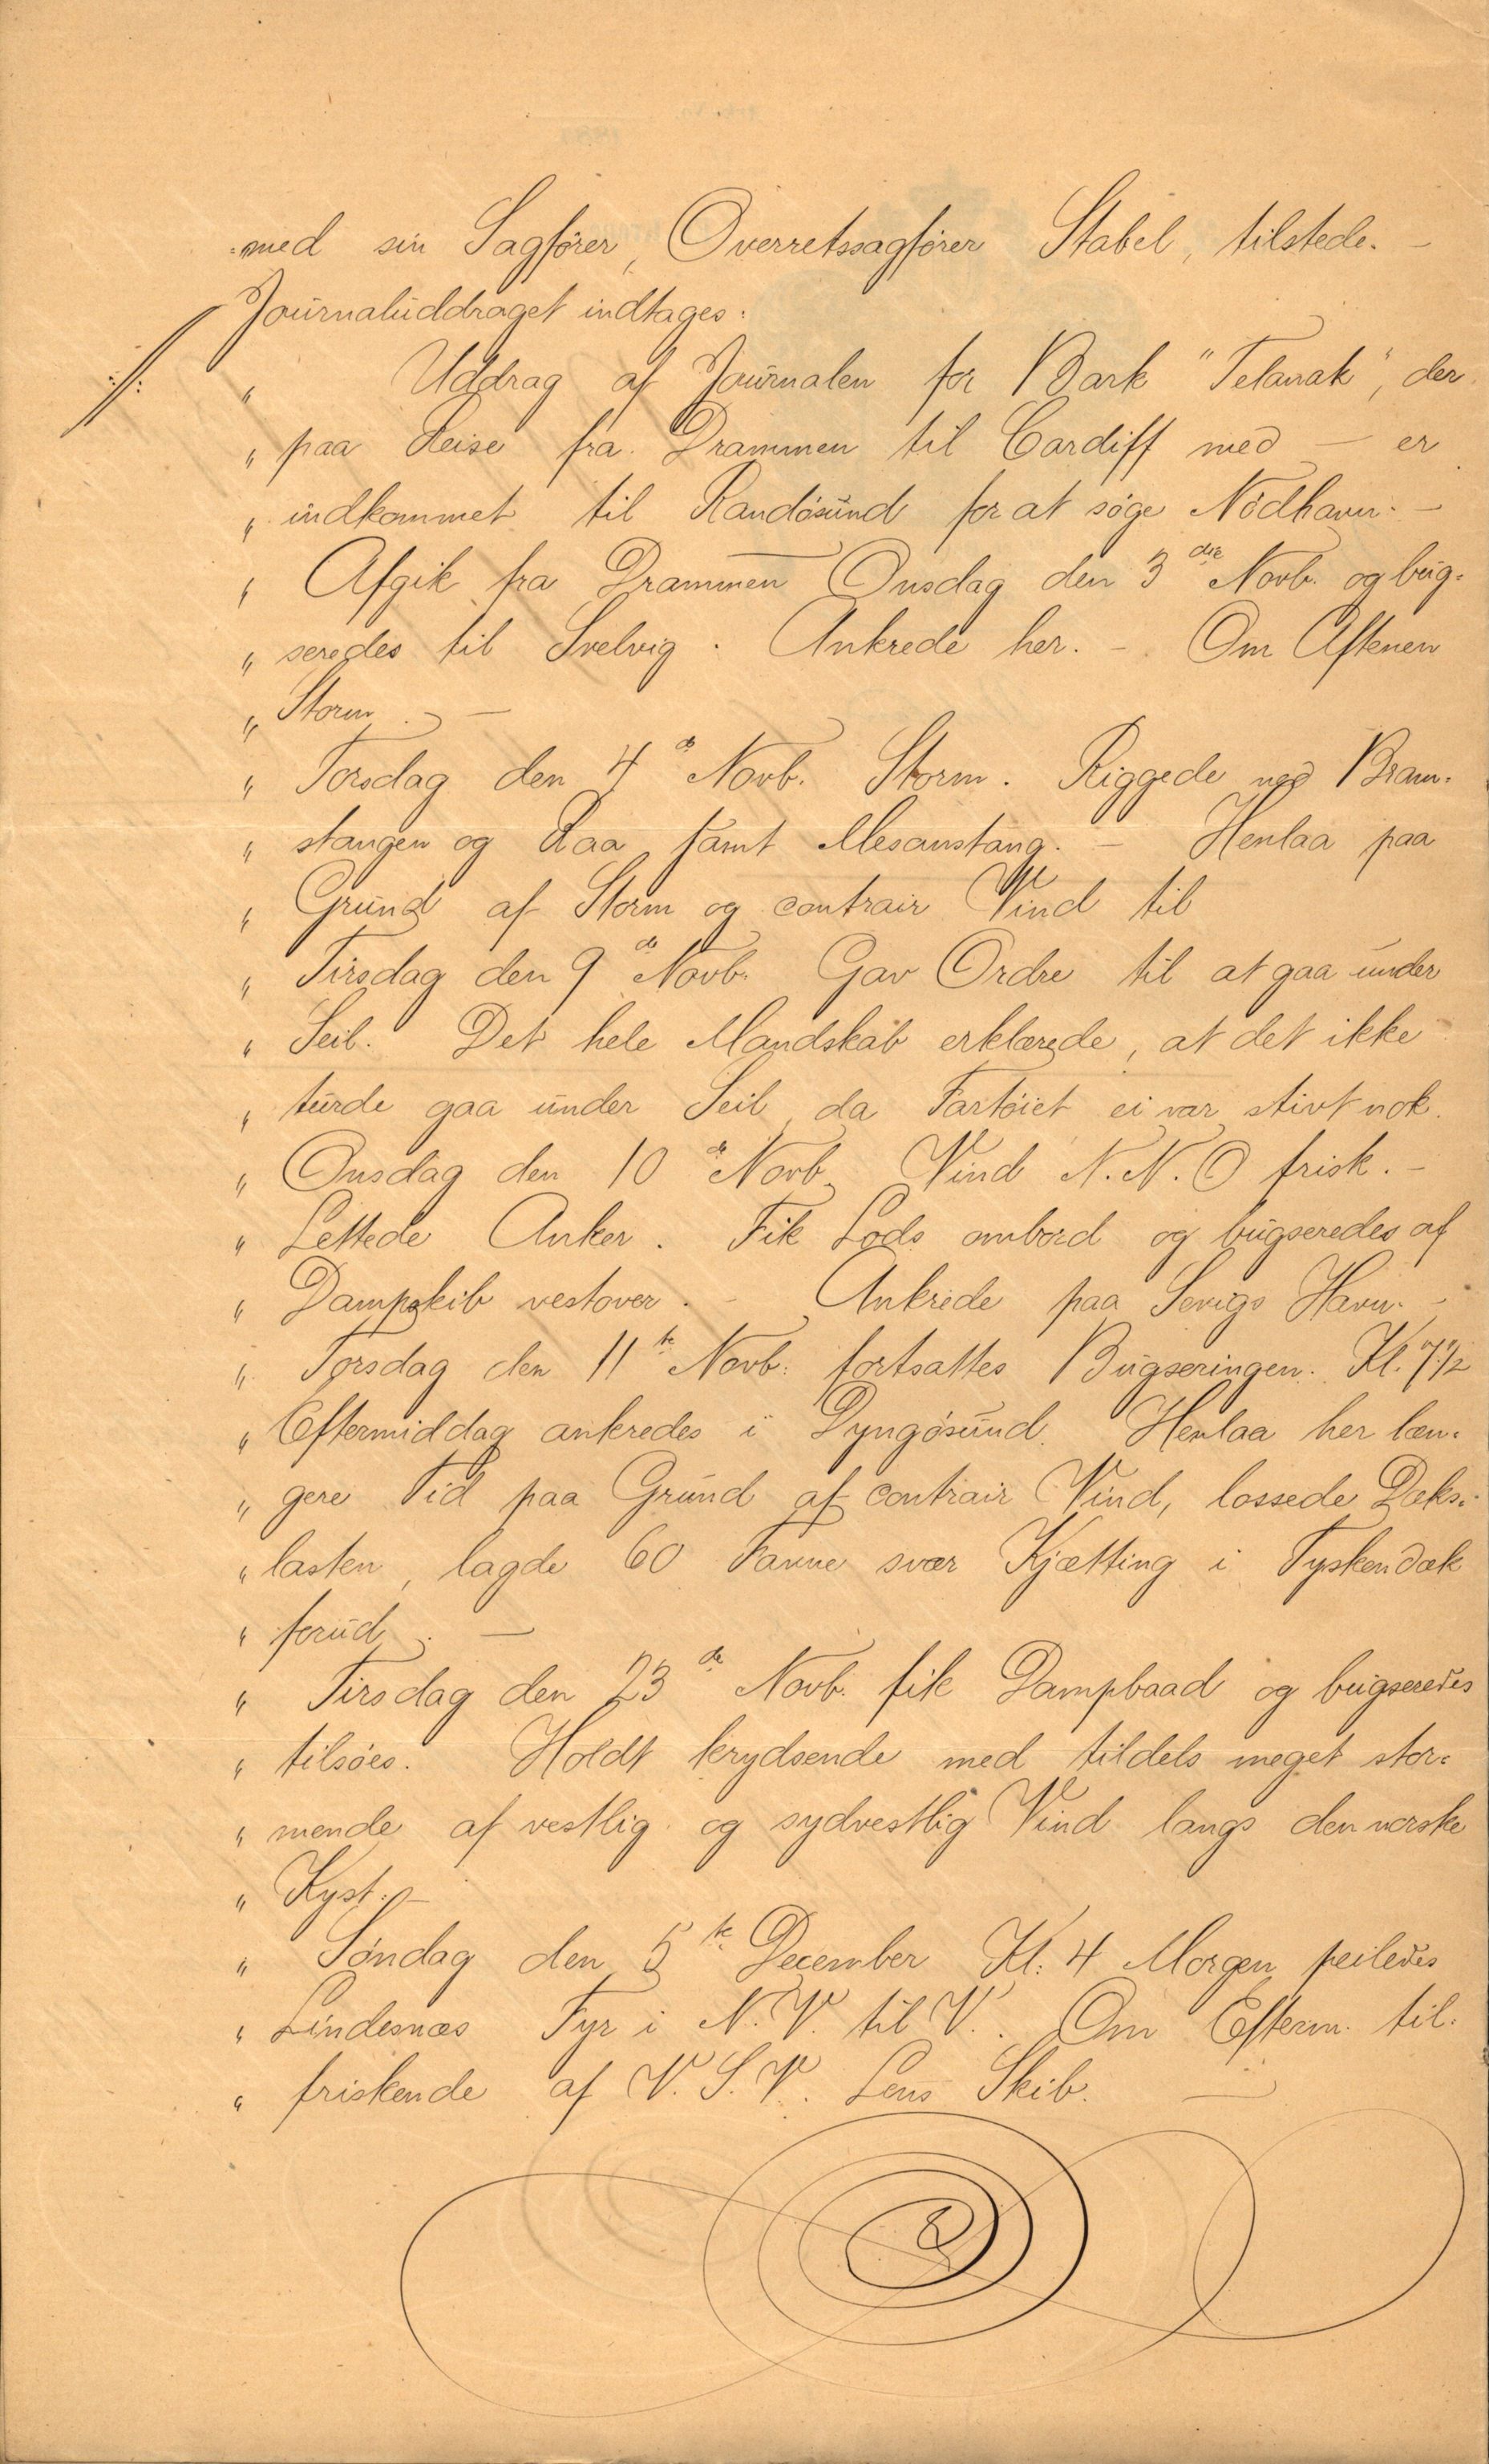 med sin Sagfører, Overretssagfører Stabel, tilstede. –
Journaluddraget indtages:
:/: „ Uddrag af Journalen for Bark "Telanak", der
„ paa Reise fra Drammen til Cardiff med – er
„ indkommet til Randøsund for at søge Nødhavn. –
„ Afgik fra Drammen Onsdag den 3die Novb. og bug-
„ seredes til Svelvig. Ankrede her. – Om Aftenen
„ Storm. –
„ Torsdag den 4de Novb. Storm. Riggede ned Bram-
„ stangen og Raa samt Mesanstang. – Henlaa paa
„ Grund af Storm og contrair Vind til
„ Tirsdag den 9de Novb. Gav Ordre til at gaa under
„ Seil. Det hele Mandskab erklærede, at det ikke
„ turde gaa under Seil, da Fartøiet ei var stivt nok.
„ Onsdag den 10de Novb. Vind N.N.O frisk. –
„ Lettede Anker. Fik Lods ombord og bugseredes af
„ Dampskib vestover. – Ankrede paa Havn. –
„ Torsdag den 11te Novb. fortsattes Bugseringen. Kl. 7½
„ Eftermiddag ankredes i Lyngøsund. Henlaa her læn-
„ gere Tid paa Grund af contrair Vind, lossede Dæks-
„ lasten, lagde 60 Favne svær Kjætting i Tyskendæk
„ forud. –
„ Tirsdag den 23de Novb. fik Dampbaad og bugseredes
„ tilsøes. Holdt krydsende med tildels meget stor-
„ mende af vestlig og sydvestlig Vind langs den norske
„ Kyst. –
„ Søndag den 5te December Kl. 4 Morgen peiledes
„ Lindesnæs Fyr i N.V. til V. Om Efterm. til-
„ friskende af V.S.V. Lens Skib. –